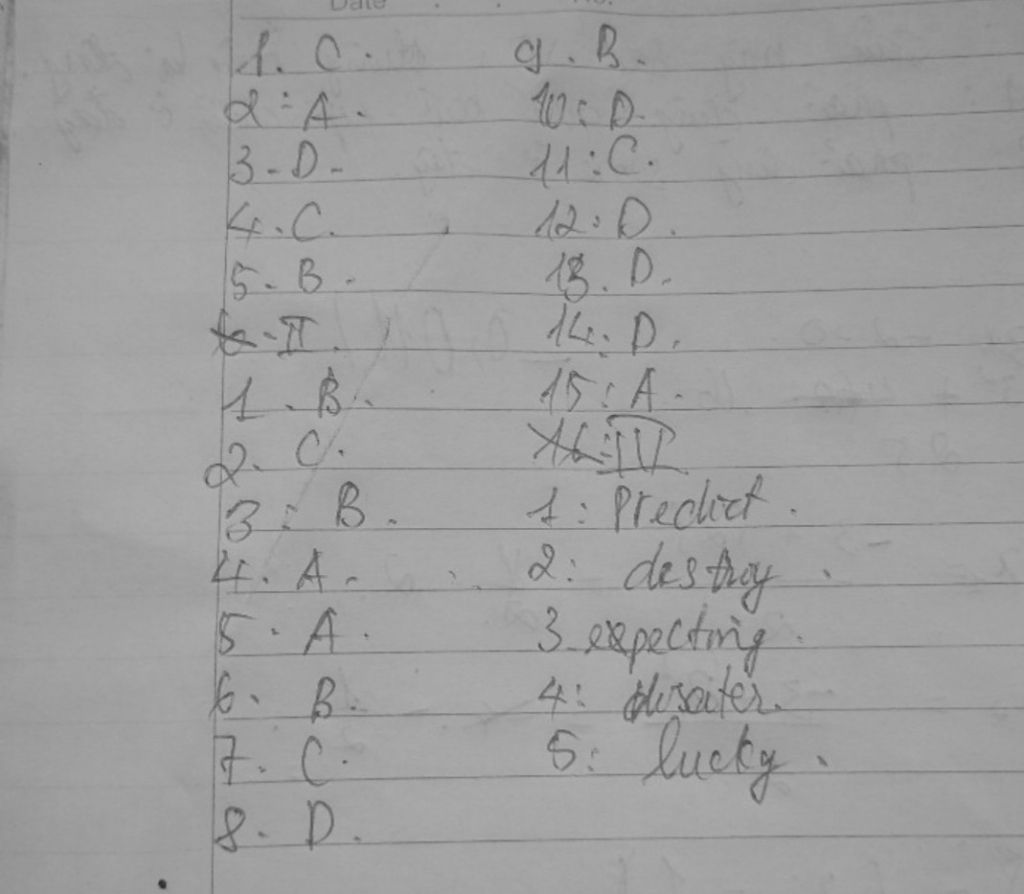 Date
1. C.
2: A.
3. D.
4. C.
5. B.
6. II.
1. B.
2. C.
3: B.
4. A.
5. A.
6. B.
7. C.
8. D.
9. B.
10: D.
11: C.
12: D.
13. D.
14: D.
15: A.
16: IV
1: Predict.
2: destroy.
3 expecting.
4: disater.
5: lucky.